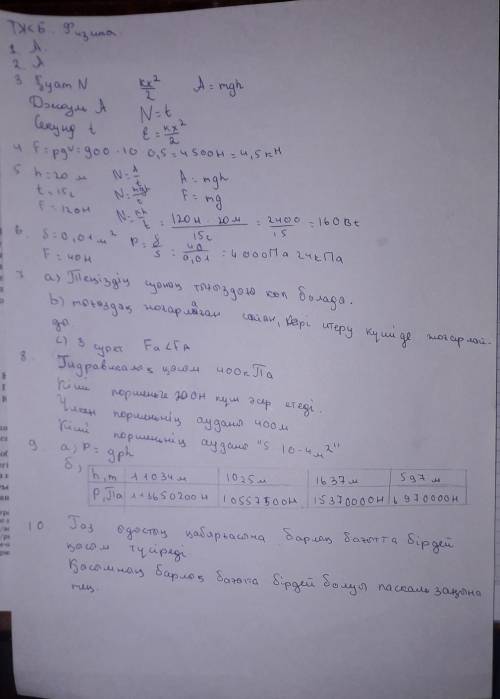 ТЖБ. Физика.
1 А.
2 А
3 Қуат N kx²/2 A = mgh
Джоуль A N = t
Секунд t E = kx²/2
4 F = pgv = 900 · 10 · 0,5 = 4500Н = 4,5кН
5 h = 20 м N = A/t A = mgh
t = 15с N = mgh/t F = mg
F = 120Н N = Fh/t = 120Н · 20м/15с = 2400/15 = 160Вt
6. S = 0,01 м² P = F/S = 40/0,01 = 4000Па = 4кПа
F = 40Н
7. а) Теңіздің тығыздығы көп болады.
b) тығыздық жоғарлаған сайын, кері итеру күші де жоғарлай-
ды
с) 3 сурет Fa < Fa
8. Гидравликалық қысым 400кПа
Кіші поршеньге 200Н күш әсер етеді.
Үлкен поршеньнің ауданы 400м
Кіші поршеньнің ауданы "5 10-4м²"
9. а, P = gph
б,
h, m 11034м 1025м 1637м 597м
P, Па 113650200Н 10557500Н 15370000Н 6970000Н
10. Газ ыдыстың қабырғасына барлық бағытта бірдей
қысым түсіреді
Қысымның барлық бағытта бірдей болуы паскаль заңына
тең.